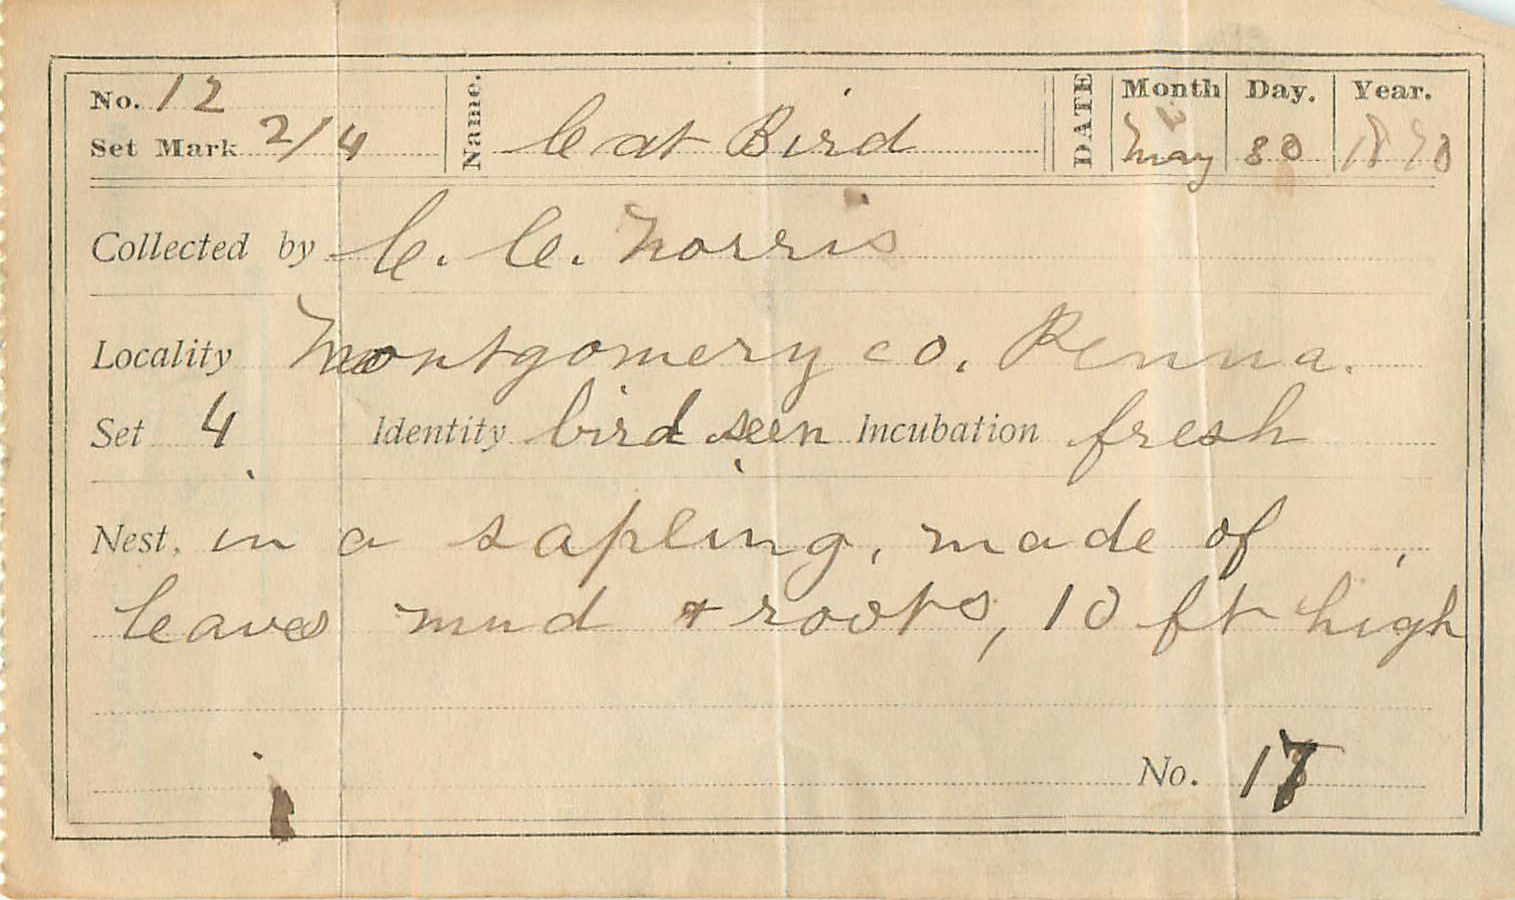 No. 12
Set Mark 2/4
Name. Cat Bird
DATE
Month Day. Year.
May 30 1890
Collected by C. C. Norris
Locality Montgomery co. Penna.
Set 4 Identity bird seen Incubation fresh
Nest, in a sapling, made of
leaves mud + roots, 10 ft high
No. 17